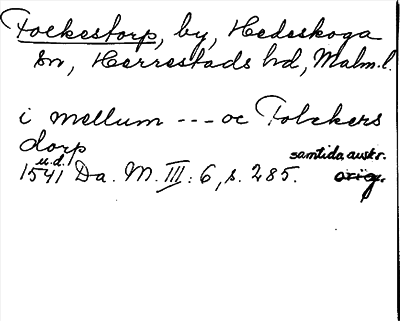 Folkestorp, by, Hedeskoga
sn, Herrestads hd, Malm.l.
i mellum --- oc Folckers
dorp
u.d. samtida avskr.
1541 Da. M. III: 6, s. 285. orig.